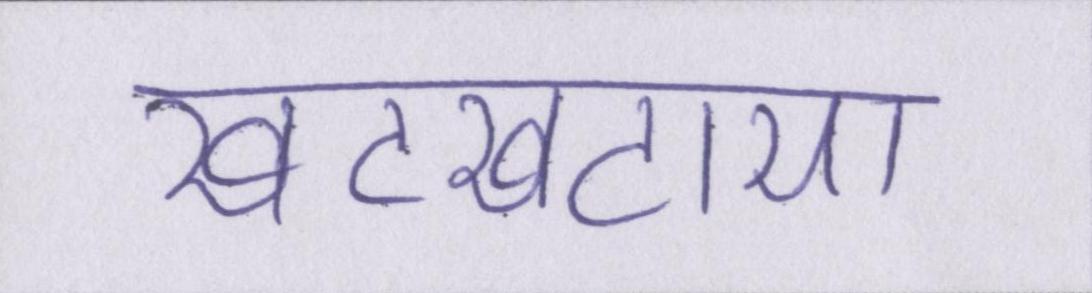 खटखटाया